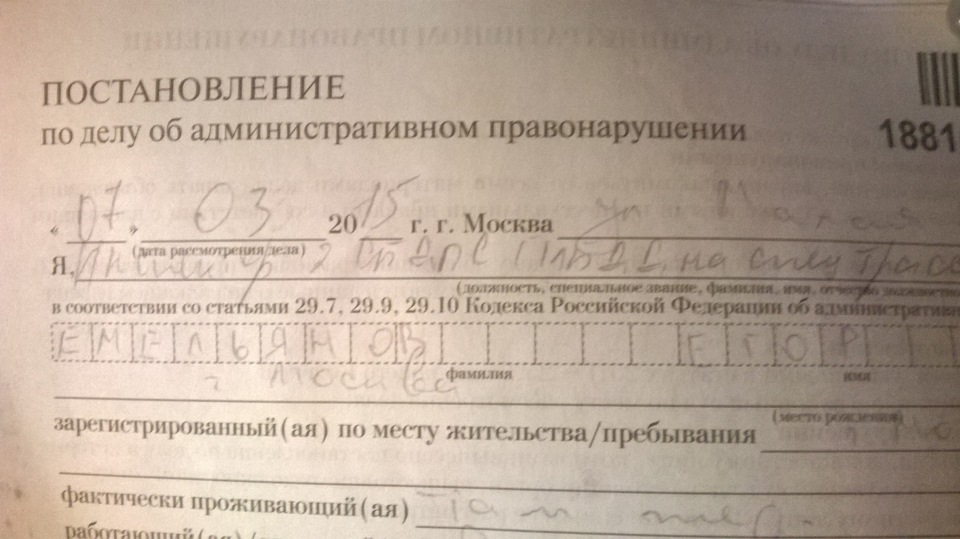 ПОСТАНОВЛЕНИЕ
по делу об административном правонарушении
1881
« 07 » 03 2015 г. г. Москва ул
(дата рассмотрения дела)
Я, 2 СП ДПС ГИБДД на спец трассе
(должность, специальное звание, фамилия, имя, отчество
в соответствии со статьями 29.7, 29.9, 29.10 Кодекса Российской Федерации об административн
ЕМЕЛЬЯНОВ ЕГОР
фамилия имя
г Москва
(место рождения)
зарегистрированный(ая) по месту жительства/пребывания
фактически проживающий(ая)
работающий(ая)